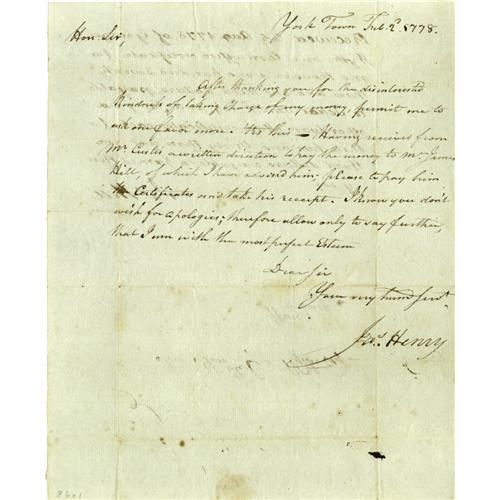 York Town Feb. 2d. 1778.
Hon. Sir,
After thanking you for the disinterested
kindness of taking charge of my money, permit me to
ask one favor more. Its this — Having received from
Mr Custis a written direction to pay the money to Mr James
Hill, of which I have advised him; please to pay him
the Certificates and take his receipt. I know you don't
wish for Apologies; therefore allow only to say further,
that I am with the most perfect Esteem
Dear Sir
Your very hum Servt.
Jas. Henry
8601